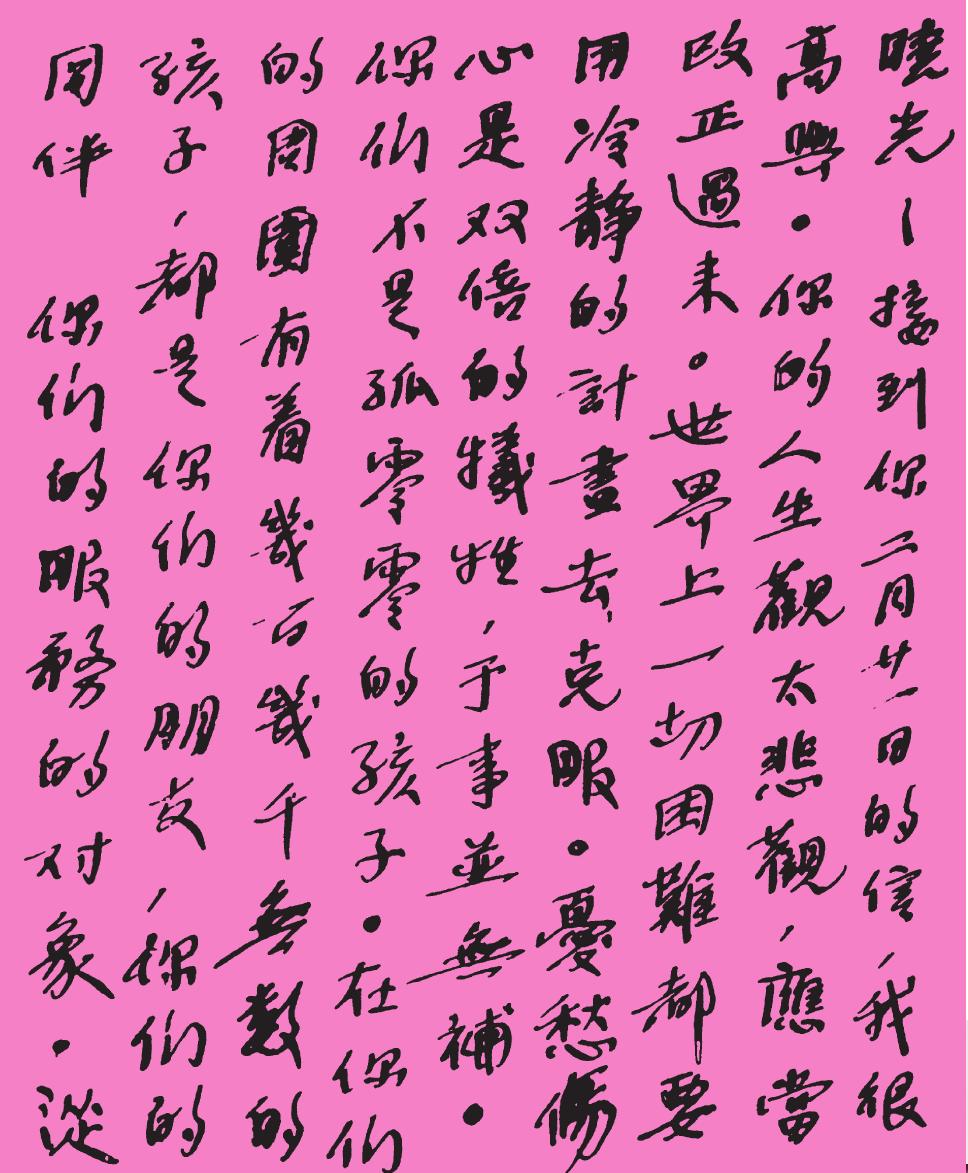 曉光－接到你二月廿一日的信，我很
高興。你的人生觀太悲觀，應當
改正過来。世界上一切困難都要
用冷靜的計畫去克服。憂愁傷
心是双倍的犠牲，于事並無補。
你们不是孤零零的孩子。在你们
的周圍有着幾百幾千無數的
孩子，都是你们的朋友，你们的
同伴 你们的服務的对象。從